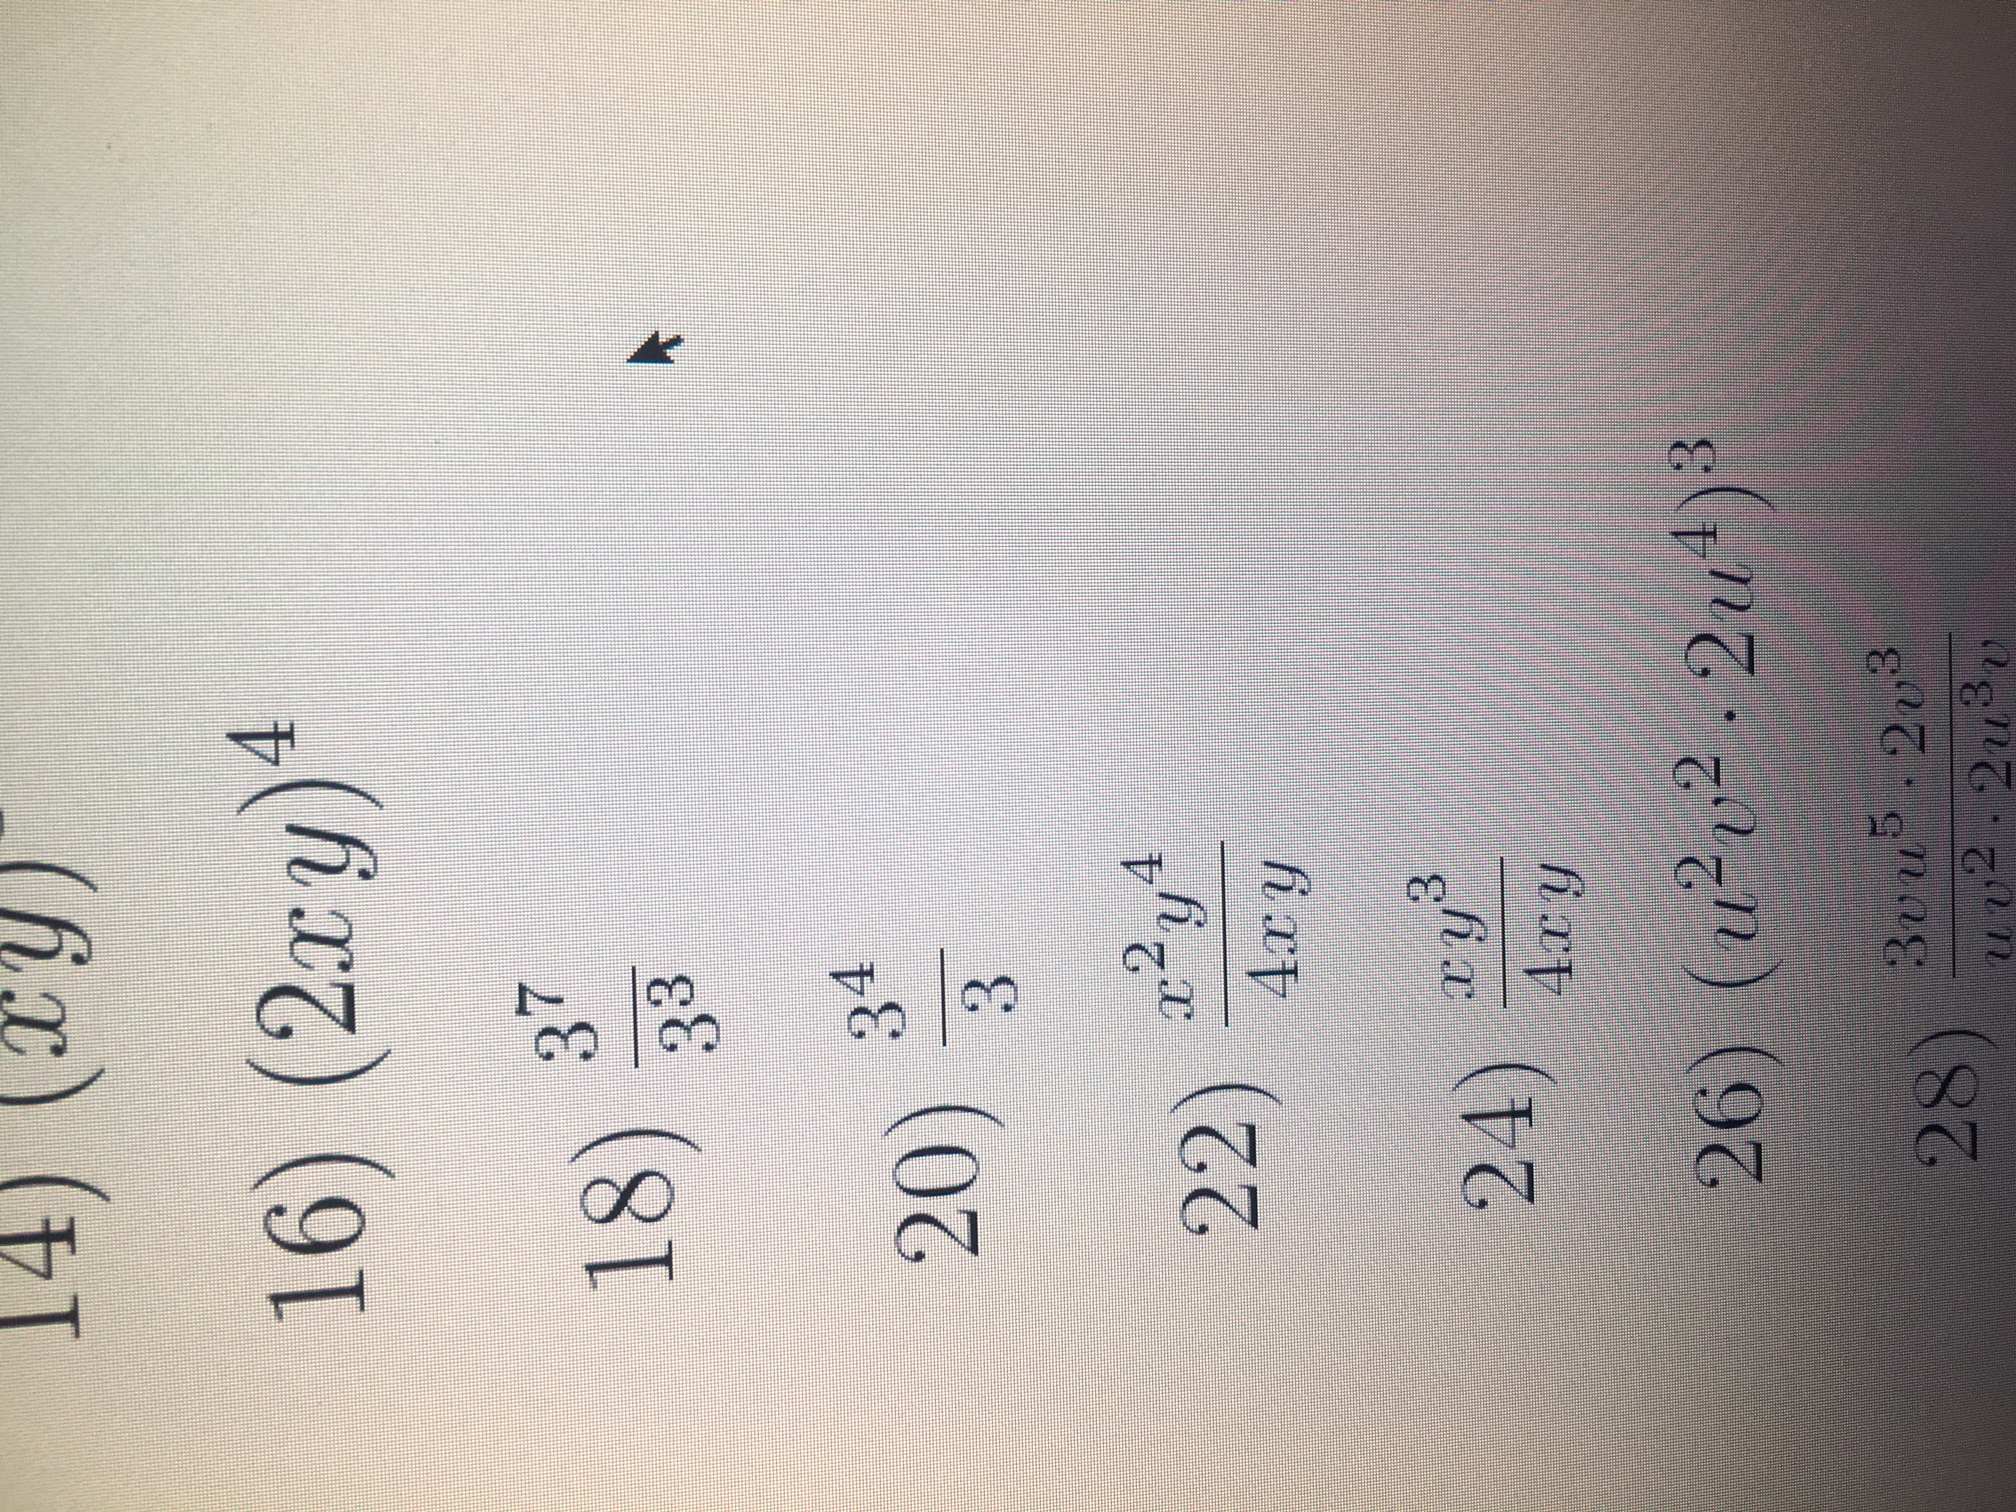 14) (xy)
16) (2xy)^4
18) 3^7/3^3
20) 3^4/3
22) x^2y^4/4xy
24) xy^3/4xy
26) (u^2v^2 · 2u^4)^3
28) 3vu^5 · 2v^3/uv^2 · 2u^3v